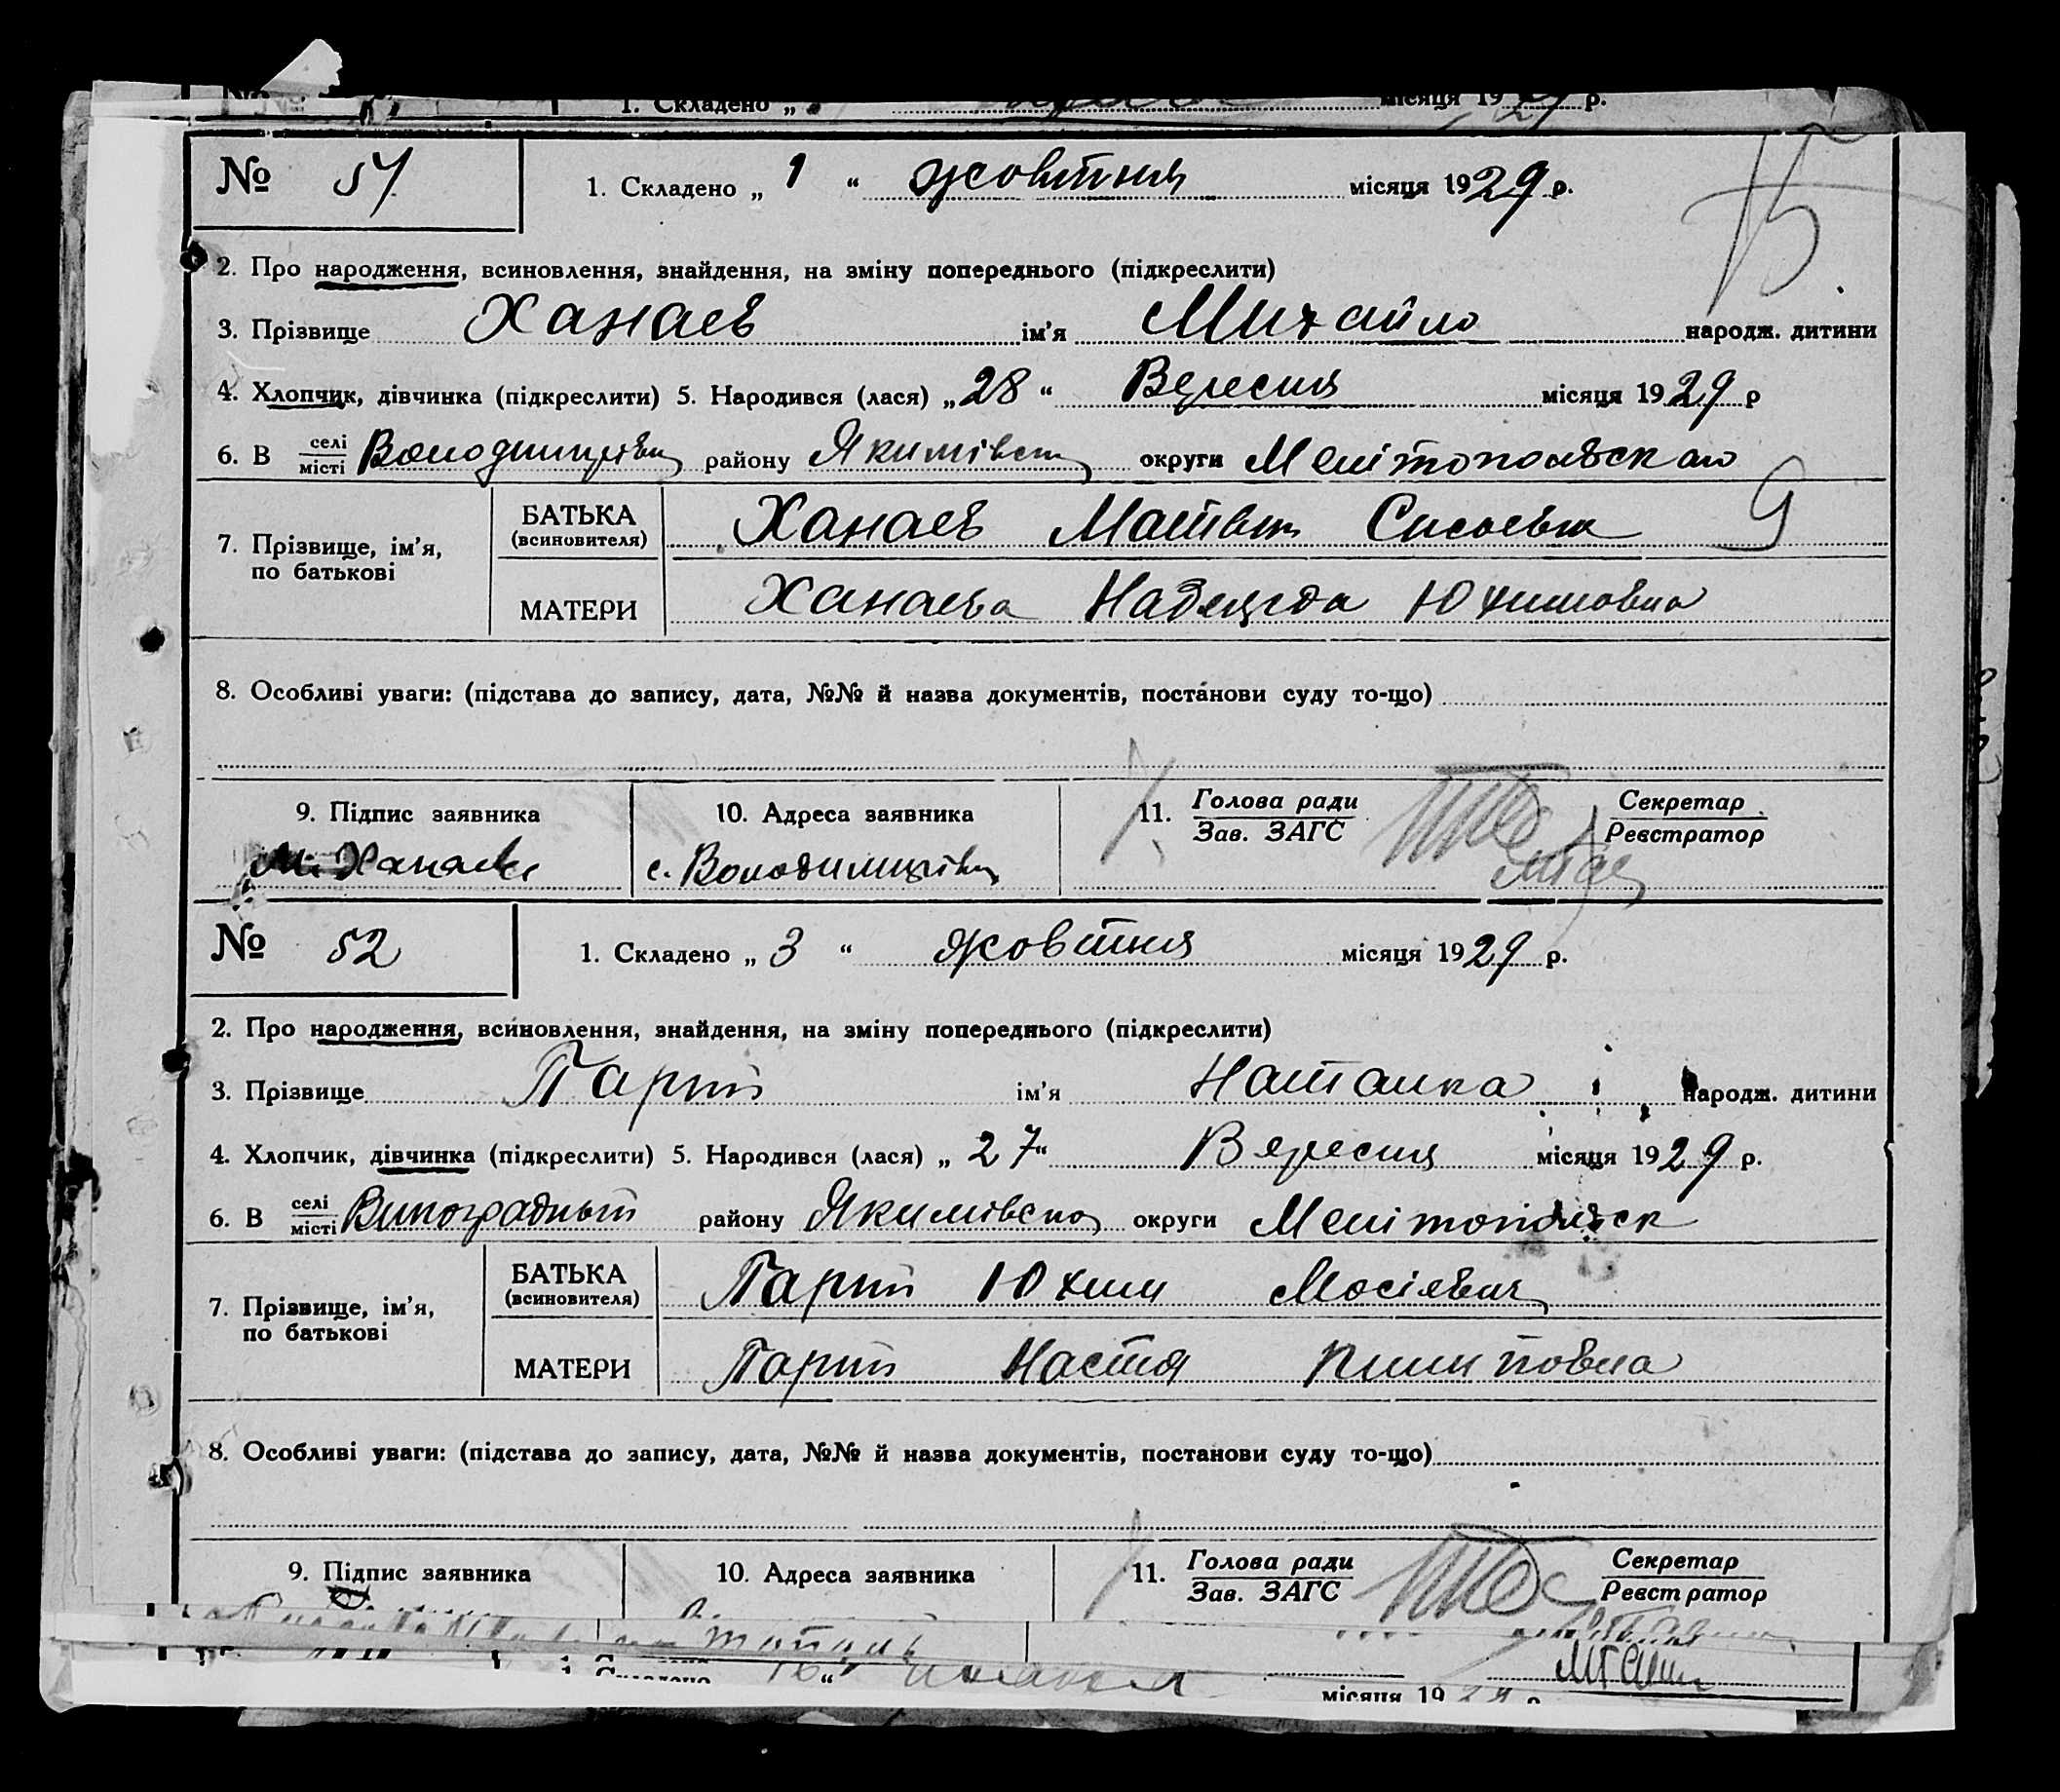 1. Складено „ місяця 1929 р.
№ 51 1. Складено „ 1 “ жовтня місяця 1929 р.
15
2. Про народження, всиновлення, знайдення, на зміну попереднього (підкреслити)
3. Прізвище Ханаев ім’я Михайло народж. дитини
4. Хлопчик, дівчинка (підкреслити) 5. Народився (лася) „ 28 “ Вересня місяця 1929 р
6. В селі/місті Володимирівц району Якимівськ округи Мелітопольского
7. Прізвище, ім’я, по батькові
БАТЬКА (всиновителя) Ханаев Матвій Сисоевич 9
МАТЕРИ Ханаева Надежда Юхимовна
8. Особливі уваги: (підстава до запису, дата, №№ й назва документів, постанови суду то-що)
9. Підпис заявника 10. Адреса заявника 11. Голова ради / Зав. ЗАГС Секретар / Реєстратор
М. Ханаев с. Володимирівц
№ 52 1. Складено „ 3 “ жовтня місяця 1929 р.
2. Про народження, всиновлення, знайдення, на зміну попереднього (підкреслити)
3. Прізвище Гарт ім’я Наталка народж. дитини
4. Хлопчик, дівчинка (підкреслити) 5. Народився (лася) „ 27 “ Вересня місяця 1929 р.
6. В селі/місті Виноградный району Якимівско округи Мелітопольск
7. Прізвище, ім’я, по батькові
БАТЬКА (всиновителя) Гарт Юхим Мосієвич
МАТЕРИ Гарт Настя Пилиповна
8. Особливі уваги: (підстава до запису, дата, №№ й назва документів, постанови суду то-що)
9. Підпис заявника 10. Адреса заявника 11. Голова ради / Зав. ЗАГС Секретар / Реєстратор
місяця 1929 р